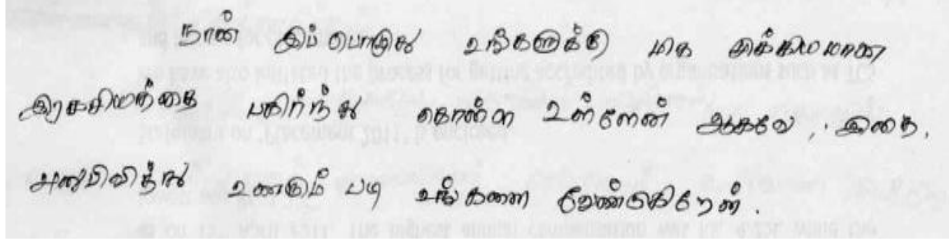 நான் இப்பொழுது உங்களுக்கு மிக முக்கியமான
இரகசியத்தை பகிர்ந்து கொள்ள உள்ளேன் ஆகவே, இதை,
அனுபவித்து உணரும் படி உங்களை வேண்டுகிறேன்.